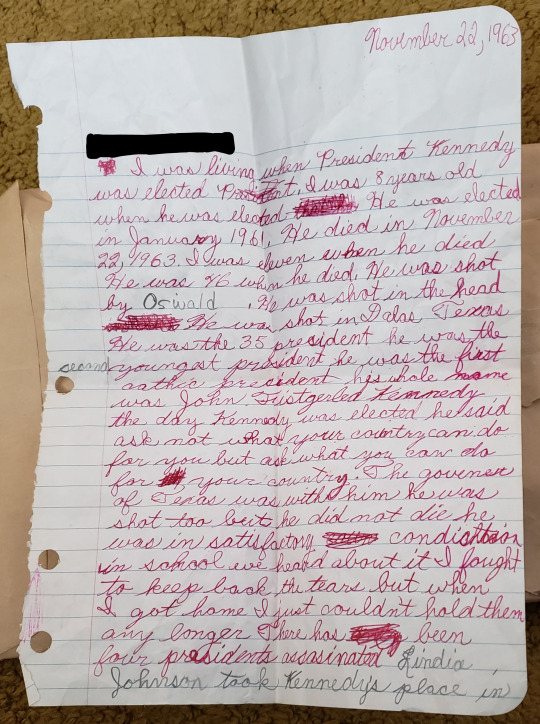 November 22, 1963
I was living when President Kennedy
was elected I was 8 years old
when he was elected He was elected
in January 1961. He died in November
22, 1963. I was eleven when he died
He was 46 when he died. He was shot
by Oswald . He was shot in the head
He was shot in Dalas, Texas
He was the 35 president he was the
second youngest president he was the first
cathic president his whole name
was John Fistgerled Kennedy
the day Kennedy was elected he said
ask not what your country can do
for you but ask what you can do
for your country. The govener
of Texas was with him he was
shot too but he did not die he
was in satisfactory condichion
in school we heard about it I fought
to keep back the tears but when
I got home I just couldn't hold them
any longer There has been
four presidents assasinated Lindia
Johnson took Kennedy's place in